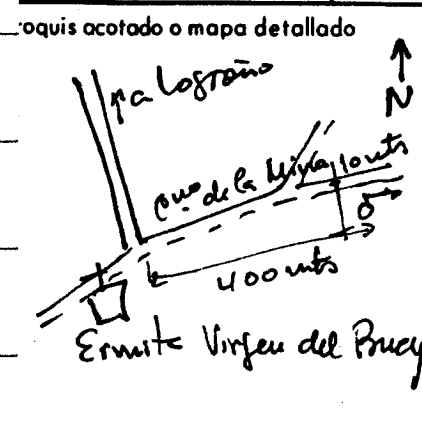 roquis acotado o mapa detallado
a Logroño
N
de la
10 mts
400 mts
Ermita Virgen del